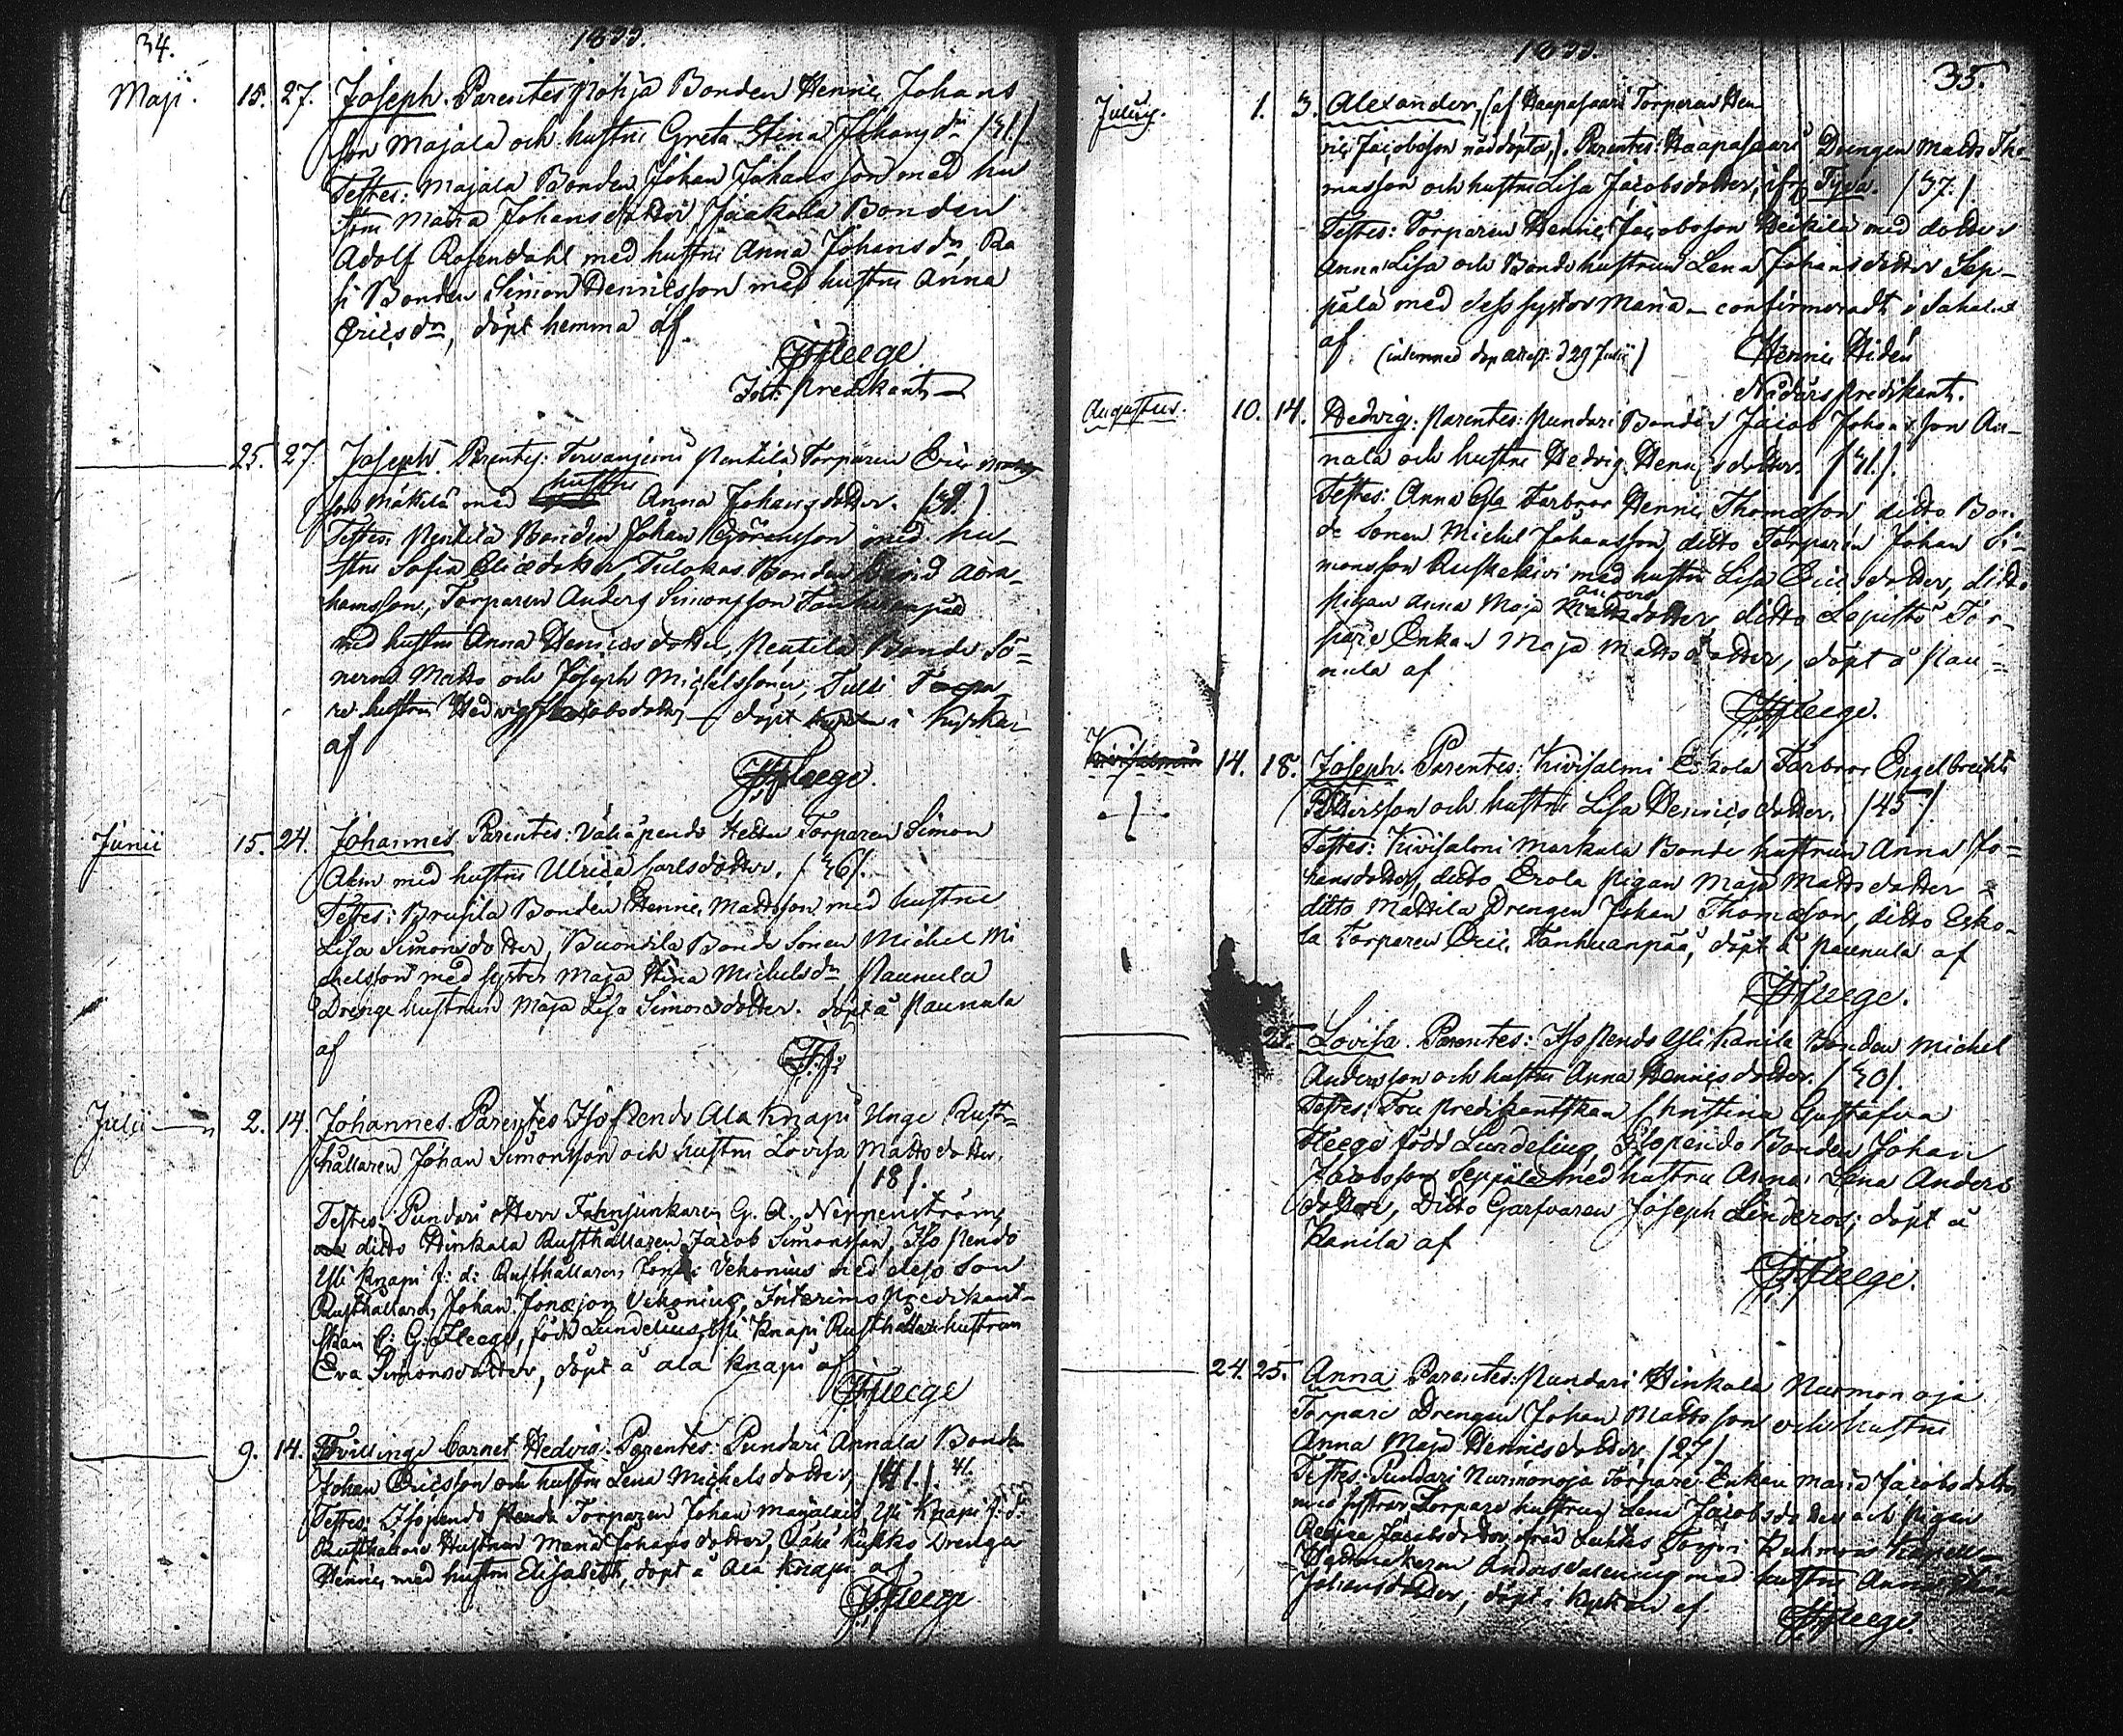 34.
1833.
Maji. 15. 27. Joseph. Parentes Pohja Bonden Henric Johans
son Majala och hustru Greta Stina Johansdr /31./
Testes: Majala Bonden Johan Johansson med hu
stru Maria Johansdotter, Jaakola Bonden
Adolf Rosendahl med hustru Anna Johansdr Pa
Bonden Simon Henricsson med hustru Anna
Ericsdr, döpt hemma af
Fleege
Predikant
25. 27. Joseph. Parentes: Torvanjemi Pentilä Torparen Eric
son Mattila med hustru Anna Johansdotter. (39.)
Testes: Pentilä Bonden Johan Göransson med hu-
stru Sofia Ericsdotter Tulokas Bonden David Abra-
hamsson, Torparen Anders Simonsson Tanhuanpää
med hustru Anna Henricsdotter, Pentilä Bonde Sö-
nerne Matts och Joseph Michelssöner, Tulli Torpa
re hustru Hedvig Jacobsdotter döpt i Kyrkan
af
Fleege.
Junii 15. 24. Johannes. Parentes: Väliäpendo Torparen Simon
Alm med hustru Ulrica Carlsdotter. /36/.
Testes: Brusila Bonden Henric Mattsson med hustru
Lisa Simonsdotter, Buonsila Bonde Sonen Michel Mi
chelsson med syster Maja Stina Michelsdr, Paunula
Drenge hustrun Maja Lisa Simonsdotter. döpt å Paunula
af
Julii 2. 14. Johannes. Parentes Iso Pendo Ala Knapi Unge Rust-
hållaren Johan Simonsson och hustru Lovisa Mattsdotter.
/18/.
Testes: Pundari Herr Fahnjunkaren G. A. Neppenström,
ditto Hinkala Rusthållaren Jacob Simonsson, Iso Pendo
Yli Knapi f: d: Rusthållaren Jonas Vekonius med dess son
Rusthållaren Johan Jonasson Vekonius, Interims Predikant-
skan C: G: Fleege, född Lundelius, Yli Knapi Rusthållare hustrun
Eva Simonsdotter, döpt å ala Knapi af
Fleege
9. 14. Tvillinge barnet Hedvig. Parentes: Pundari Annala Bonden
Johan Ericsson och hustru Lena Michelsdotter, /41./ 41.
Testes: Isopendo Torparen Johan Majalain, Yli Knapi f: d:
Rusthållare Hustrun Maria Johansdotter, Drengen
Henric med hustru Elisabeth, döpt å Ala Knapi af
Fleege
1833.
35.
Julius. 1. 3. Alexander, (af Haapasaari Torparen Hen
ric Jacobsson nöddöpta,). Parentes: Haapasaari Drengen Matts Tho-
masson och hustru Lisa Jacobsdotter, ifrån Tyva. /37./
Testes: Torparen Henric Jacobsson Heikilä med dotter
Anna Lisa och Bonde hustrun Lena Johansdotter Sep-
pälä med dess syster Maria - confirmeradt i Sahalax
af (inlemnad dop attest: d 29 Julii)
Henric Hidén
Nådårs predikant.
Augustus. 10. 14. Hedvig: Parentes: Pundari Bonden Jacob Johansson An-
nala och hustru Hedvig Henricsdotter. /41./.
Testes: Annala Farbror Henric Thomasson, ditto Bon-
de Sonen Michel Johansson, ditto Torparen Johan Si-
monsson Ruskekivi med hustru Lisa Ericsdotter, ditto
Pigan Anna Maja Anders dotter, ditto Lepistö Tor-
pare Enkan Maja Mattsdotter, döpt å Pau-
nula af
Fleege.
14. 18. Joseph. Parentes: Kivisalmi Eskola Farbror Engelbrecht
Persson och hustru Lisa Henricsdotter. /45/
Testes: Kivisalmi Markula Bonde hustrun Anna Jo-
hansdotter, ditto Erola Pigan Maja Mattsdotter
ditto Mattila Drengen Johan Thomasson, ditto Esko-
la Torparen Eric Tanhuanpää, döpt å Paunula af
Fleege.
25. Lovisa. Parentes: Iso Pendo Yli Kanila Bonden Michel
Andersson och hustru Anna Henricsdotter. /30/.
Testes: Predikantskan Christina Gustafva
Fleege född Lundelius, Isopendo Bonden Johan
Jacobsson Seppälä med hustru Anna Lena Anders
dotter, Ditto Garfvaren Joseph Linderos, döpt å
Kanila af
Fleege.
24. 25. Anna Parentes: Pundari Hinkala Nurmonoja
Torpare Drengen Johan Mattsson och hustru
Anna Maja Henricsdotter /27/
Testes: Pundari Nurmonoja Torpare Enkan Maria Jacobsdotter
med systrar Torpare hustrun Lena Jacobsdotter och Pigan
Regina Jacobsdotter, från Luhtis Kuhmois
Anders Valenius med hustru Anna
Johansdotter, döpt i Kyrkan af
Fleege.